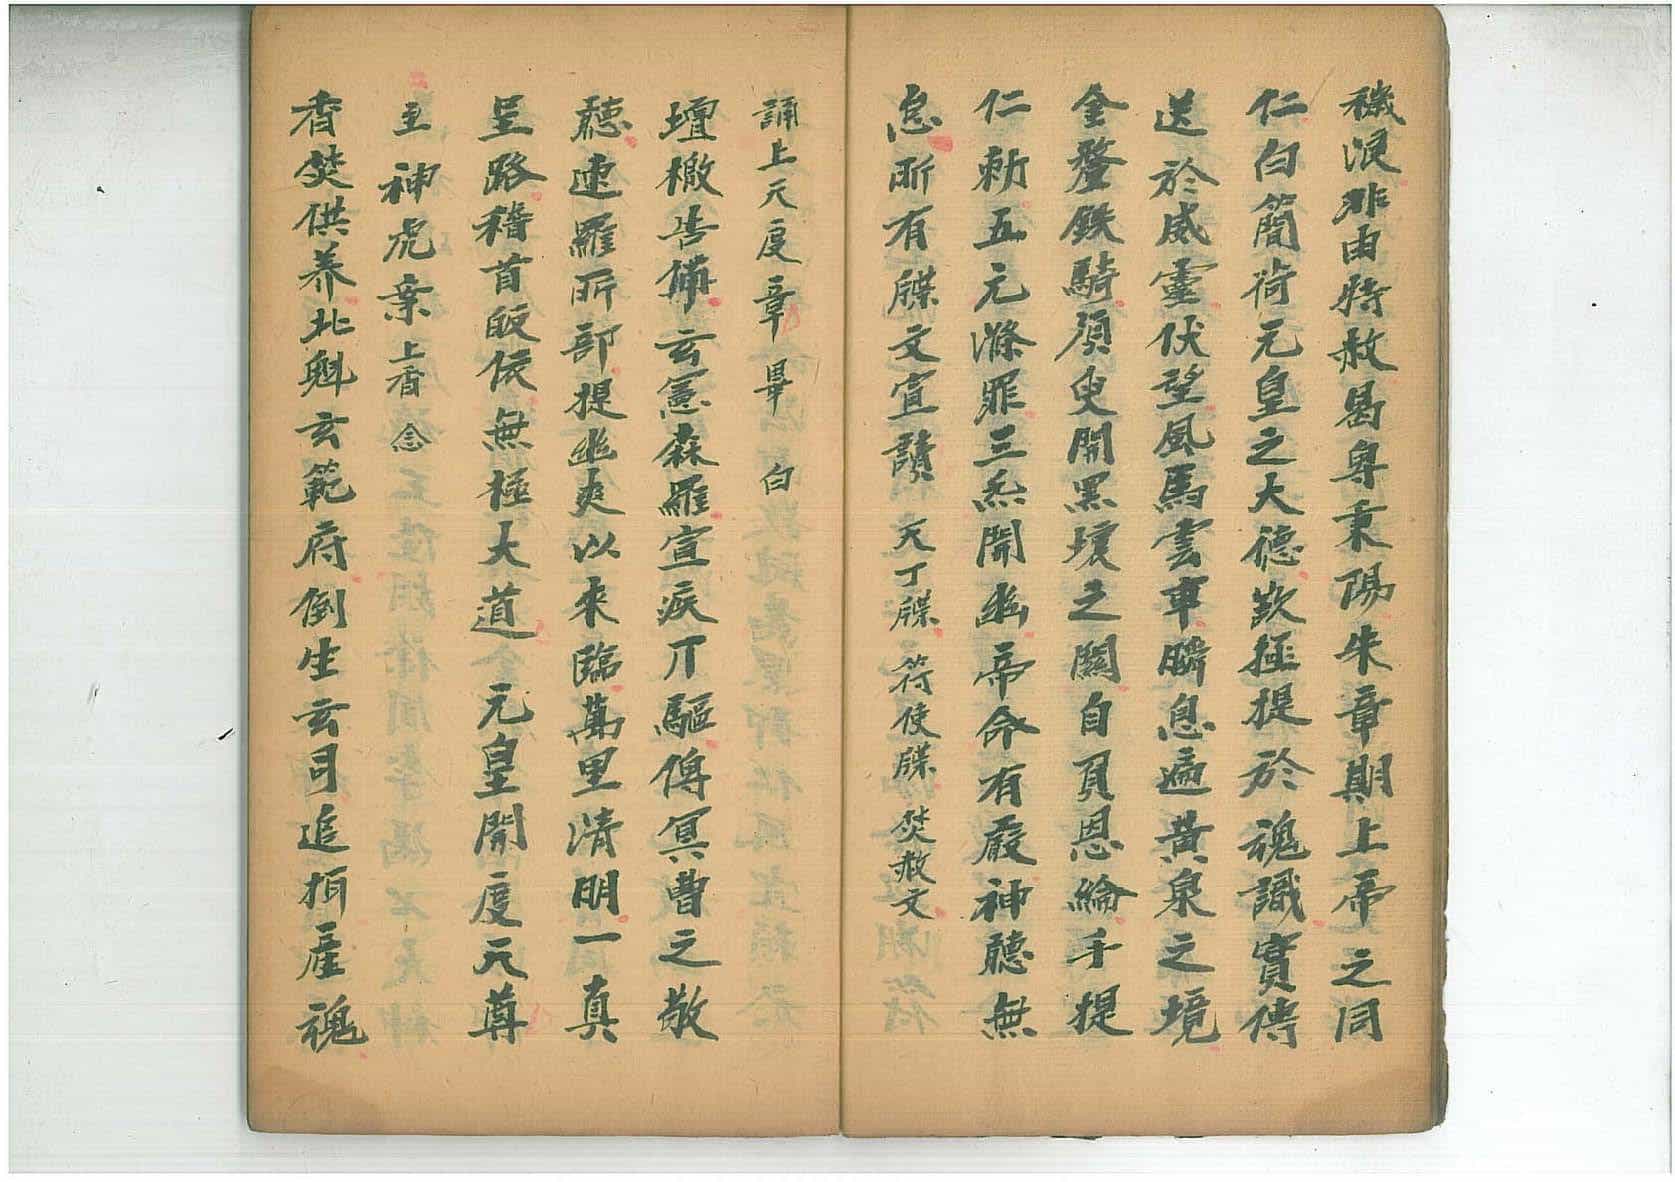 穢浪非由特赦曷粤秉陽朱章期上帝之同
仁白簡荷元皇之大德欵拯提於魂識實傳
送於威靈伏望風馬雲車瞬息遍黃泉之境
金鰲鉄騎須臾開黑壤之關自頁恩綸千提
仁勅五元滌罪三炁開幽帝命有嚴神聽無
怠所有牒文宣讀 天丁牒 符使牒 焚赦文
誦上元度章畢 白
壇檄告備玄憲森羅宣疾丁驅傳冥曹之敬
聽速羅所部提幽爽以来臨萬里清明一真
呈路稽首皈依無極大道 元皇開度天尊
至神虎案上香 念
香焚供养北魁玄範府倒生玄司追捐産魂